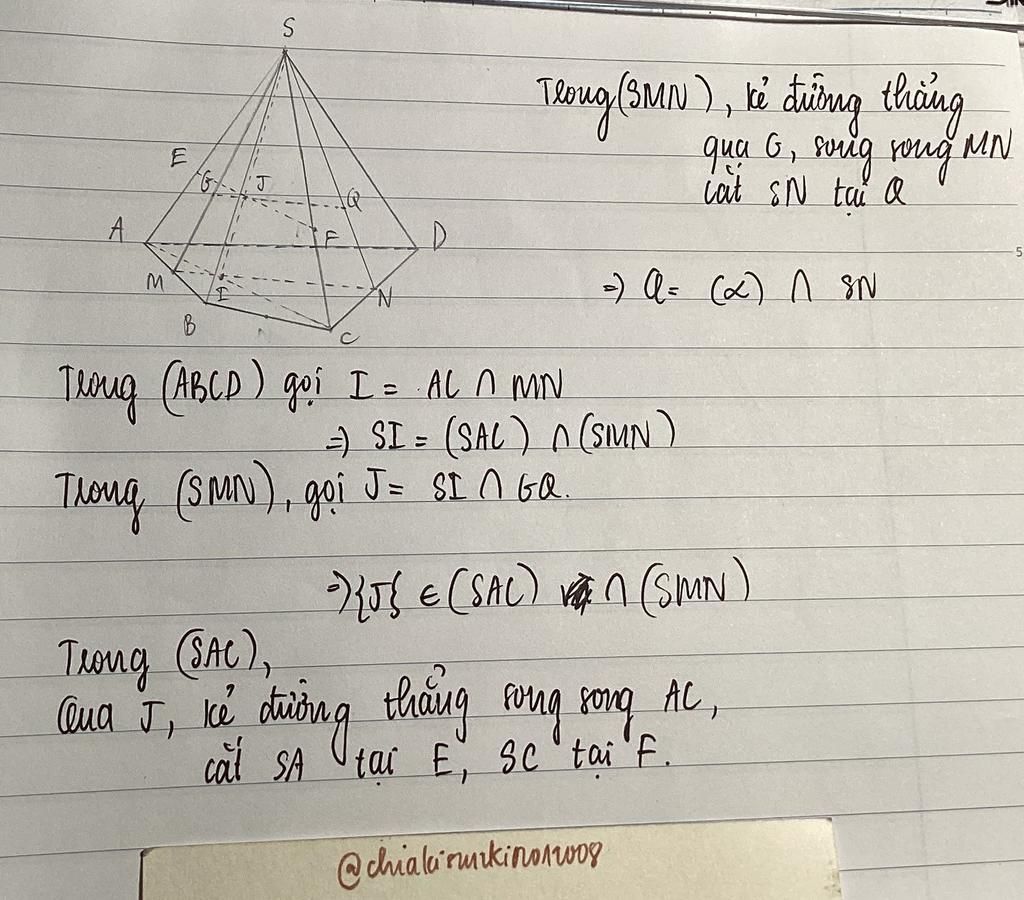 S
E
G
J
Q
A
F
D
M
I
N
B
C
Trong (SMN), kẻ đường thẳng
qua G, song song MN
cắt SN tại Q
=> Q = (α) ∩ SN
Trong (ABCD) gọi I = AC ∩ MN
=> SI = (SAC) ∩ (SMN)
Trong (SMN), gọi J = SI ∩ GQ.
=> {J} ∈ (SAC) ∩ (SMN)
Trong (SAC),
Qua J, kẻ đường thẳng song song AC,
cắt SA tại E, SC tại F.
5